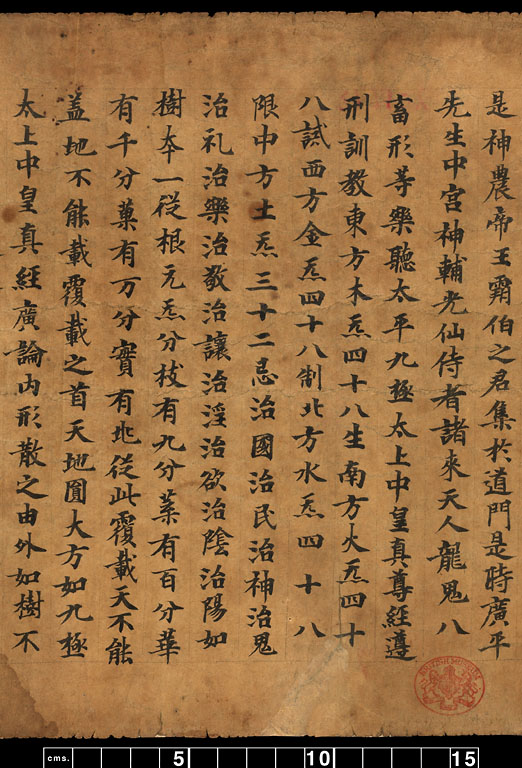 是神農帝王霸伯之君集於道門是時廣平
先生中宮神輔光仙侍者諸來天人龍鬼八
畜形等樂聽太平九極太上中皇真尊經遵
刑訓教東方木炁四十八生南方火炁四十
八試西方金炁四十八制北方水炁四十八
限中方土炁三十二忌治國治民治神治鬼
治礼治樂治敬治讓治淫治欲治陰治陽如
樹本一從根元炁分枝有九分葉有百分華
有千分菓有万分實有地從此覆載天不能
盖地不能載覆載之首天地圓大方如九極
太上中皇真經廣論內形散之由外如樹不
BRITISH MUSEUM
cms. 5 10 15